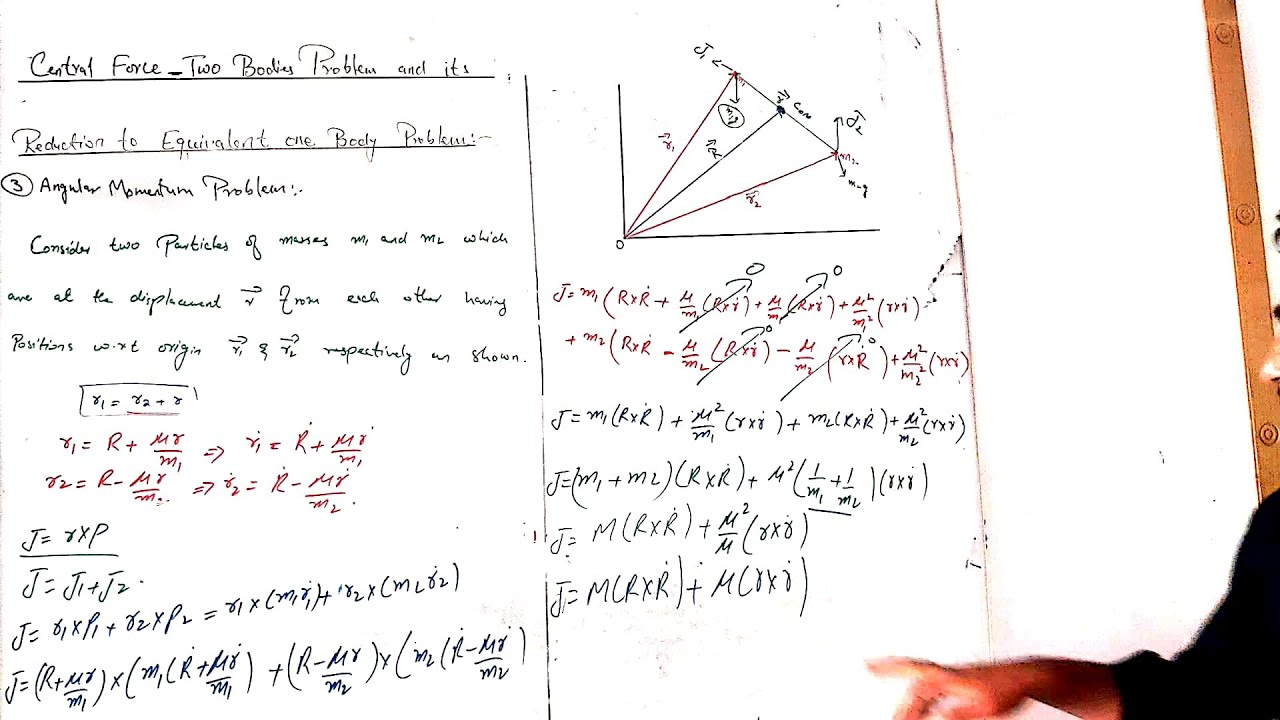 Central Force - Two Bodies Problem and its
Reduction to Equivalent one Body Problem:-
③ Angular Momentum Problem:-
Consider two Particles of masses m₁ and m₂ which
are at the displacement r⃗ from each other having
Positions w.r.t origin r⃗₁ & r⃗₂ respectively as shown.
r₁ = r₂ + r
r₁ = R + μr/m₁ ⇒ ṙ₁ = Ṙ + μṙ/m₁
r₂ = R - μr/m₂ ⇒ ṙ₂ = Ṙ - μṙ/m₂
J = r×P
J = J₁ + J₂
J = r₁×P₁ + r₂×P₂ = r₁×(m₁ṙ₁) + r₂×(m₂ṙ₂)
J = (R + μr/m₁)×(m₁(Ṙ + μṙ/m₁) + (R - μr/m₂)×(m₂(Ṙ - μṙ/m₂)
J₁
m₁
r⃗
COM
J⃗₂
m₂
r⃗₁
R⃗
r⃗₂
O
J = m₁(R×Ṙ + μ/m₁(R×ṙ) + μ/m₁(R×ṙ) + μ²/m₁²(r×ṙ)
0
0
+ m₂(R×Ṙ - μ/m₂(R×ṙ) - μ/m₂(r×Ṙ) + μ²/m₂²(r×ṙ)
0
0
J = m₁(R×Ṙ) + μ²/m₁(r×ṙ) + m₂(R×Ṙ) + μ²/m₂(r×ṙ)
J = (m₁ + m₂)(R×Ṙ) + μ²(1/m₁ + 1/m₂)(r×ṙ)
J = M(R×Ṙ) + μ²/μ(r×ṙ)
J = M(R×Ṙ) + μ(r×ṙ)